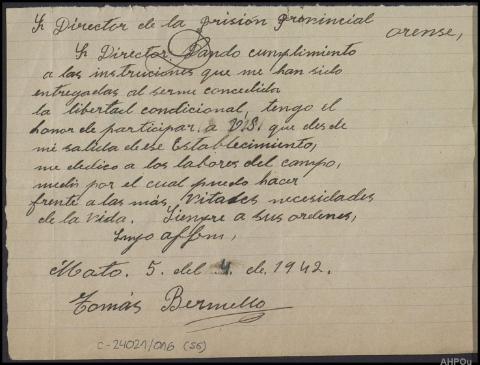 Sr Director de la prisión Provincial
orense,
Sr Director. Dando cumplimiento
a las instruciones que me han sido
entregadas al serme concedida
la libertad condicional, tengo el
honor de participar a V.S. que desde
mi salida de ese Establecimiento,
me dedico a los labores del campo,
medio por el cual puedo hacer
frente a las más Vitales necesidades
de la vida. Siempre a sus ordenes,
Suyo affmo,
Mato. 5. del 4. de. 1942.
Tomás Bermello
C-24021/016 (56)
AHPOu